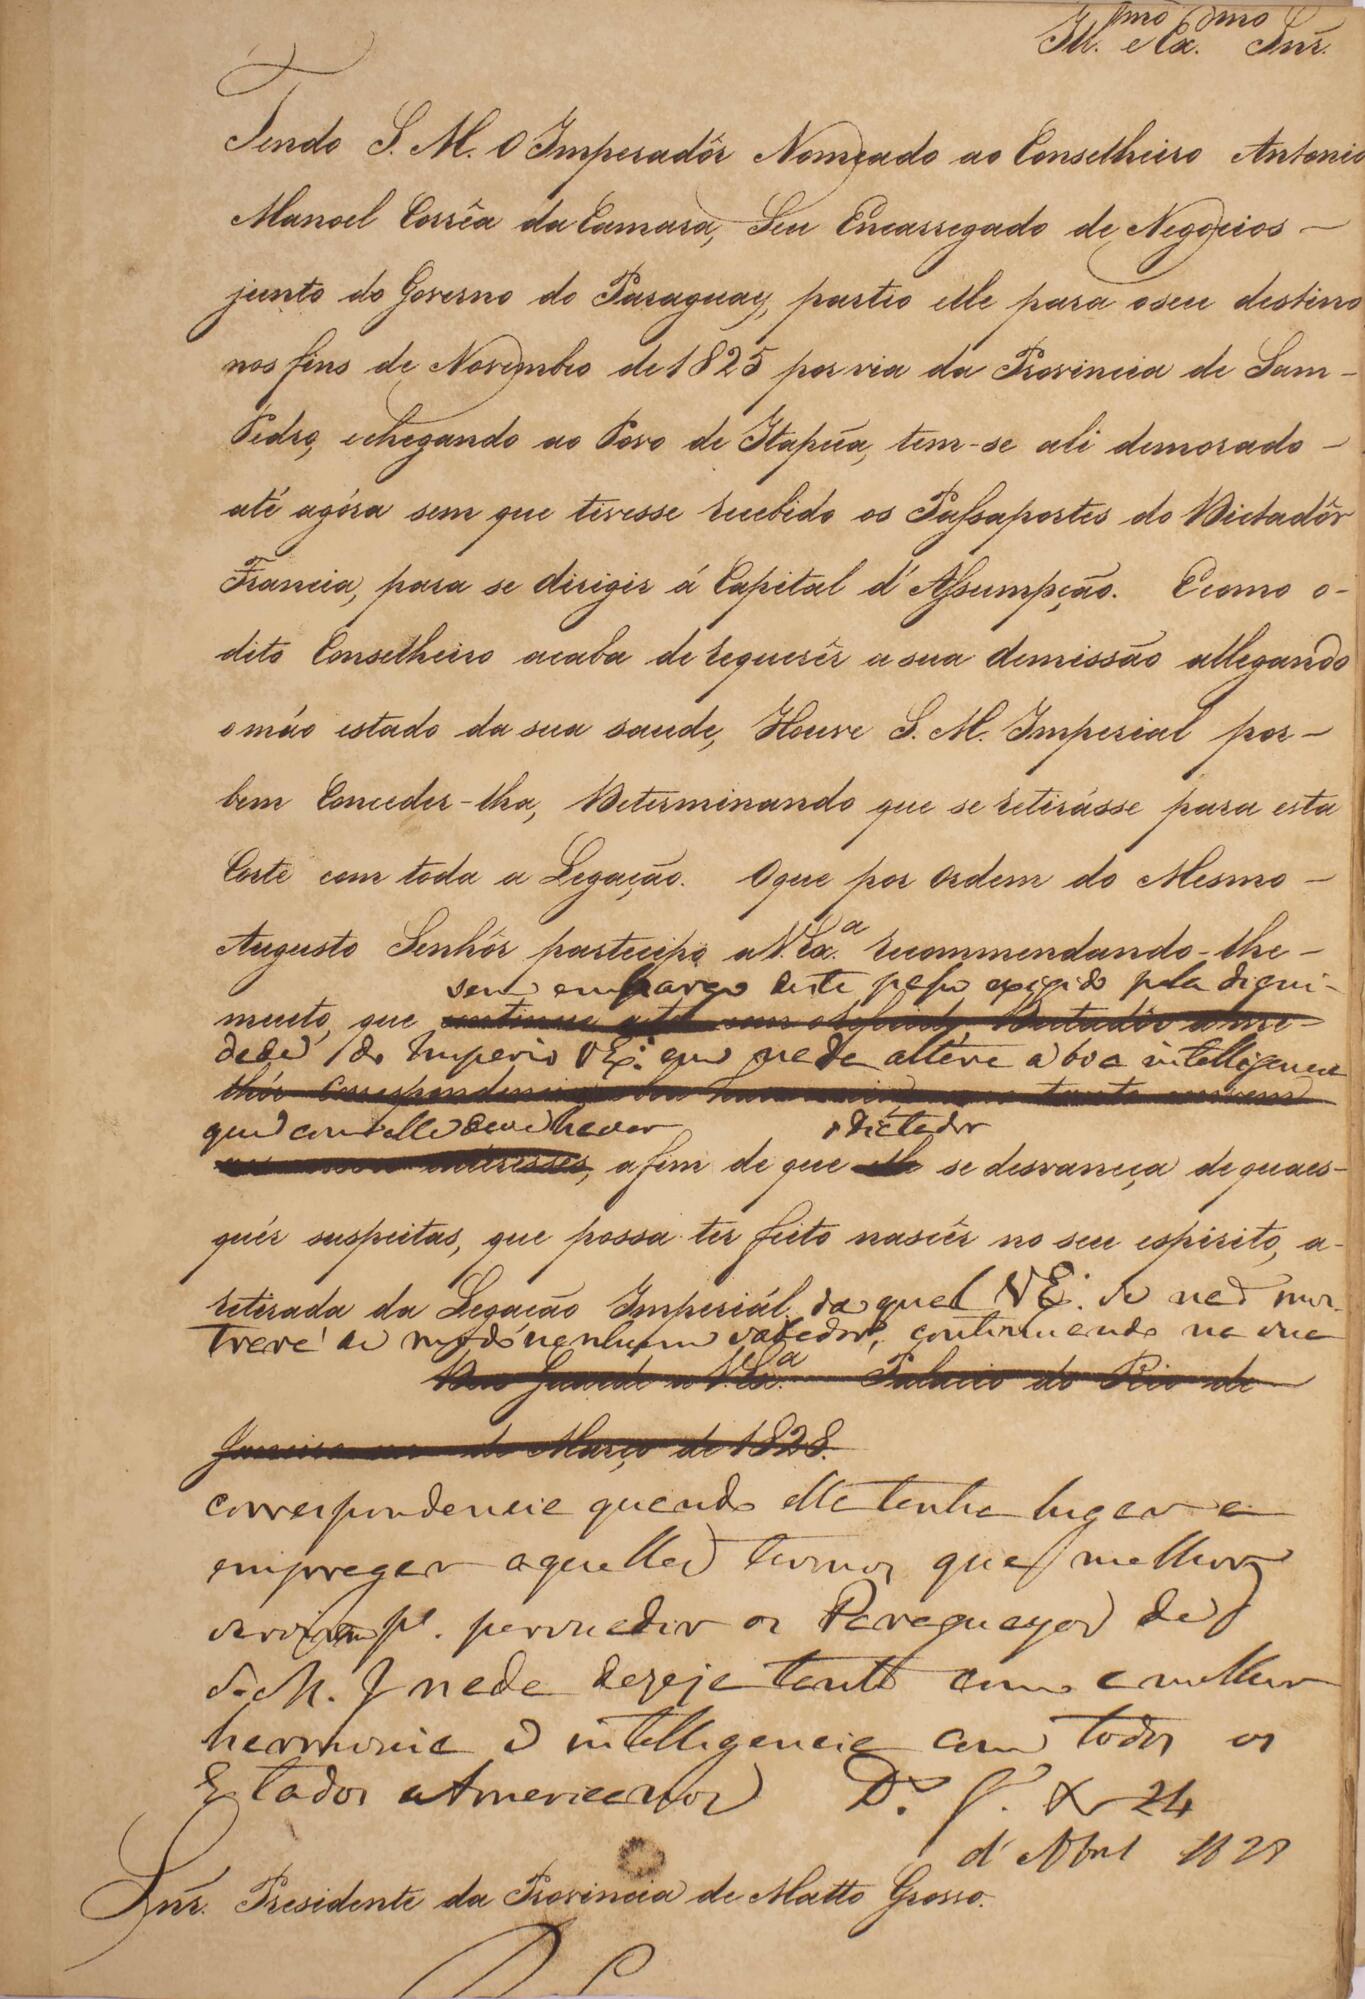 Ill.mo e Ex.mo Snr.
Tendo S. M. O Imperadôr Nomeado ao Conselheiro Antonio
Manoel Corrêa da Camara, Seu Encarregado de Negocios –
junto do Governo do Paraguay, partio elle para o seu destino
nos fins de Novembro de 1825 por via da Provincia de Sam –
Pedro, e chegando ao Povo de Itapúa, tem-se ali demorado –
até agóra sem que tivesse recebido os Passaportes do Dictadôr
Francia, para se dirigir á Capital d'Assumpção. E como o –
dito Conselheiro acaba de requerêr a sua demissão allegando
o máo estado da sua saude, Houve S. M. Imperial por –
bem Conceder-lha, Determinando que se retirásse para esta
Corte com toda a Legação. O que por Ordem do Mesmo –
Augusto Senhôr partecipo a V. Ex.a recommendando-lhe –
sem embargo deste passo exigido pela digni-
muito, que continue a ter com Dictadôr a me-
dade do Imperio V Ex. que nada altere a boa intelligencia
lhór correspondencia tanto convem
que com elle deve haver o Dictador
interesses, a fim de que elle se desvaneça de quaes-
quér suspeitas, que possa ter feito nascêr no seu espirito, a –
retirada da Legação Imperiál. da qual V E. se não mos-
trará de modo nenhum sabedor, continuando na sua
Deos Guarde a V. Ex.a Palacio do Rio de
Janeiro em de Março de 1828.
correspondencia quando ella tenha lugar a
empregar aquelles termos que melhor
sirvam p.a persuadir os Paraguayos de q
S. M. I nada deseja tanto como a melhor
harmonia e intelligencia com todos os
Estados Americanos D.s G. 24
d'Abril 1828
Snr. Presidente da Provincia de Matto Grosso.